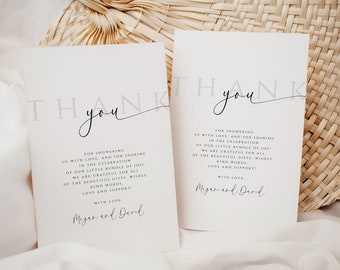 THANK
you
FOR SHOWERING
US WITH LOVE, AND FOR SHARING
IN THE CELEBRATION
OF OUR LITTLE BUNDLE OF JOY!
WE ARE GRATEFUL FOR ALL
OF THE BEAUTIFUL GIFTS, WISHES,
KIND WORDS,
LOVE AND SUPPORT!
WITH LOVE,
Megan and David
THANK
you
FOR SHOWERING
US WITH LOVE, AND FOR SHARING
IN THE CELEBRATION
OF OUR LITTLE BUNDLE OF JOY!
WE ARE GRATEFUL FOR ALL
OF THE BEAUTIFUL GIFTS, WISHES,
KIND WORDS,
LOVE AND SUPPORT!
WITH LOVE,
Megan and David